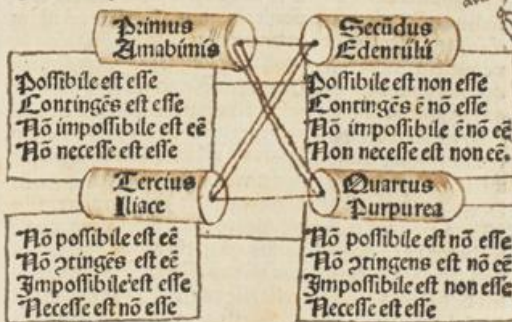 Primus
Amabimis
Poſſibile eſt eſſe
Contingēs eſt eſſe
Nō impoſſibile eſt eē
Nō neceſſe eſt eſſe
Secūdus
Edentulū
Poſſibile eſt non eſſe
Contingēs ē nō eſſe
Nō impoſſibile ē nō eē
Non neceſſe eſt non eē.
Tercius
Iliace
Nō poſſibile eſt eē
Nō ꝯtingēs eſt eē
Impoſſibile eſt eſſe
Neceſſe eſt nō eſſe
Quartus
Purpurea
Nō poſſibile eſt nō eſſe
Nō ꝯtingens eſt nō eē
Impoſſibile eſt non eſſe
Neceſſe eſt eſſe